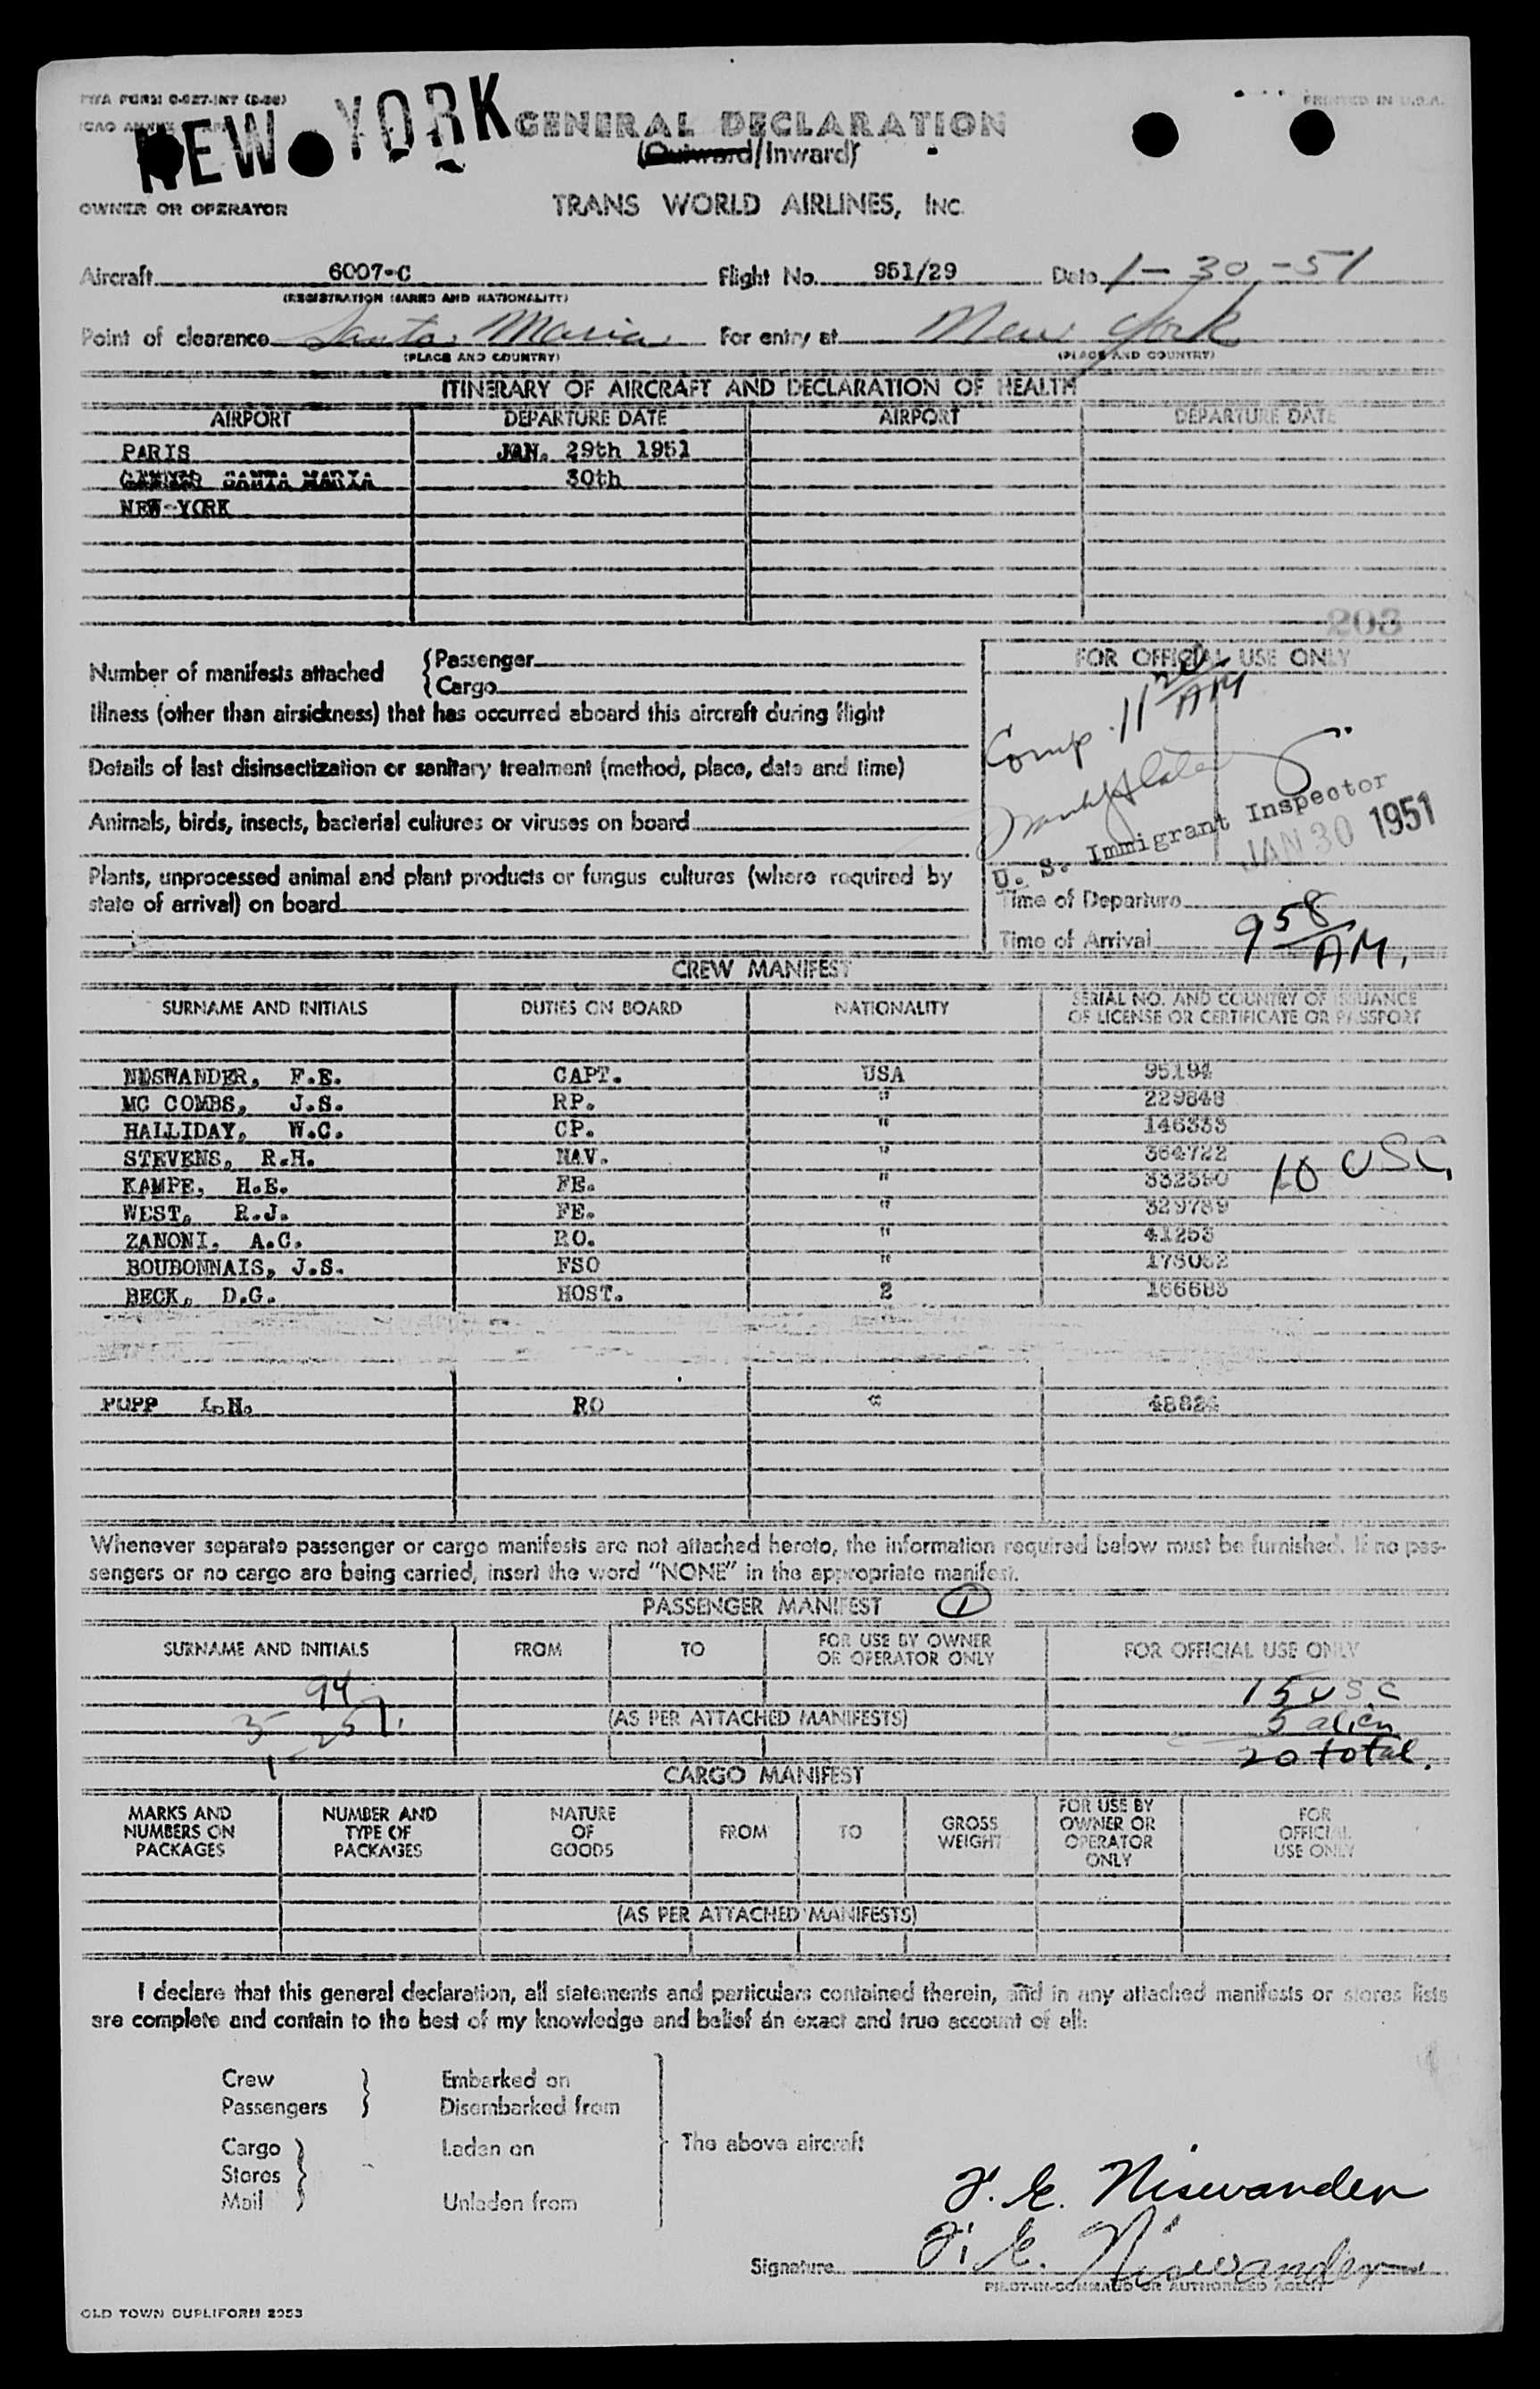 TWA FORM O-927-INT
PRINTED IN U.S.A.
ICAO ANNEX
NEW YORK
GENERAL DECLARATION
(Outward/Inward)
OWNER OR OPERATOR TRANS WORLD AIRLINES, INC.
Aircraft 6007-C Flight No. 951/29 Date 1-30-51
(REGISTRATION MARKS AND NATIONALITY)
Point of clearance Santa Maria For entry at New York
(PLACE AND COUNTRY) (PLACE AND COUNTRY)
ITINERARY OF AIRCRAFT AND DECLARATION OF HEALTH
AIRPORT DEPARTURE DATE AIRPORT DEPARTURE DATE
PARIS JAN. 29th 1951
SANTA MARIA 30th
NEW-YORK
203
Number of manifests attached {Passenger
{Cargo
FOR OFFICIAL USE ONLY
Comp. 11 20 AM
Illness (other than airsickness) that has occurred aboard this aircraft during flight
Details of last disinsectization or sanitary treatment (method, place, date and time)
Animals, birds, insects, bacterial cultures or viruses on board
U. S. Immigrant Inspector
JAN 30 1951
Plants, unprocessed animal and plant products or fungus cultures (where required by
state of arrival) on board
Time of Departure
Time of Arrival 9 58 AM.
CREW MANIFEST
SURNAME AND INITIALS DUTIES ON BOARD NATIONALITY SERIAL NO. AND COUNTRY OF ISSUANCE
OF LICENSE OR CERTIFICATE OR PASSPORT
NISWANDER, F.E. CAPT. USA 95194
MC COMBS, J.S. RP. " 229848
HALLIDAY, W.C. CP. " 146333
STEVENS, R.H. NAV. " 364722
KAMPE, H.E. FE. " 332390
10 USC
WEST, R.J. FE. " 329789
ZANONI, A.C. RO. " 41253
BOUBONNAIS, J.S. FSO " 173052
BECK, D.G. HOST. 2 166683
POPP L.H. RO " 48824
Whenever separate passenger or cargo manifests are not attached hereto, the information required below must be furnished. If no pas-
sengers or no cargo are being carried, insert the word "NONE" in the appropriate manifest.
PASSENGER MANIFEST 1
SURNAME AND INITIALS FROM TO FOR USE BY OWNER
OR OPERATOR ONLY FOR OFFICIAL USE ONLY
94 15 USC
(AS PER ATTACHED MANIFESTS) 5 alien
20 total.
CARGO MANIFEST
MARKS AND
NUMBERS ON
PACKAGES
NUMBER AND
TYPE OF
PACKAGES
NATURE
OF
GOODS
FROM
TO
GROSS
WEIGHT
FOR USE BY
OWNER OR
OPERATOR
ONLY
FOR
OFFICIAL
USE ONLY
(AS PER ATTACHED MANIFESTS)
I declare that this general declaration, all statements and particulars contained therein, and in any attached manifests or stores lists
are complete and contain to the best of my knowledge and belief an exact and true account of all:
Crew Embarked on
Passengers Disembarked from
Cargo Laden on The above aircraft
Stores
Mail Unladen from
F. E. Niswander
Signature F. E. Niswander
PILOT-IN-COMMAND OR AUTHORIZED AGENT
OLD TOWN DUPLIFORM 2953